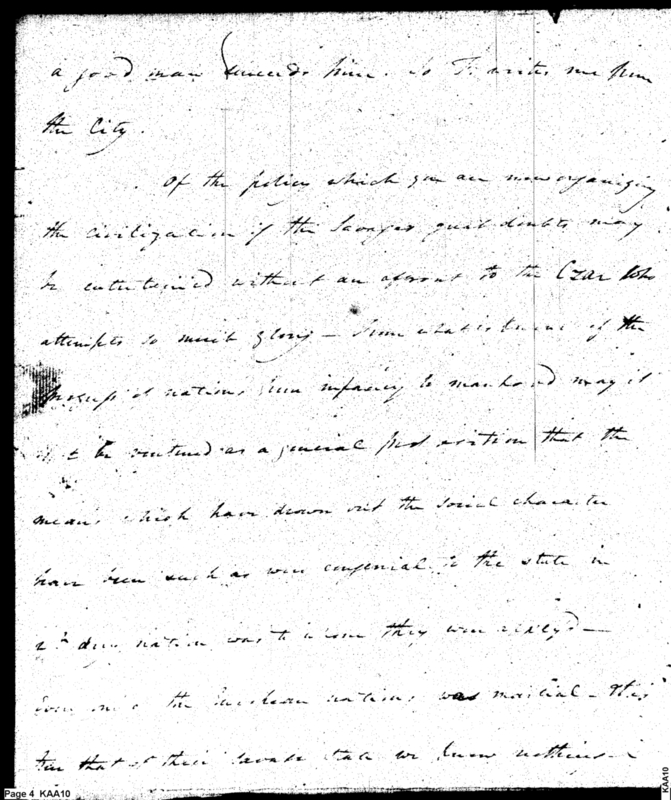 a good man succeeds him. So T. writes me from
the City.
Of the policy which you are now organizing
the civilization of the Savages great doubts may
be entertained without an affront to the Czar who
attempts so much glory — From what is known of the
progress of nations from infancy to manhood may it
not be ventured as a general position that the
means which have drawn out the social character
have been such as were congenial to the state in
wch nation was to whom they were
the nations was martial — this
that of their savage state we know nothing —
Page 4 KAA10
KAA10